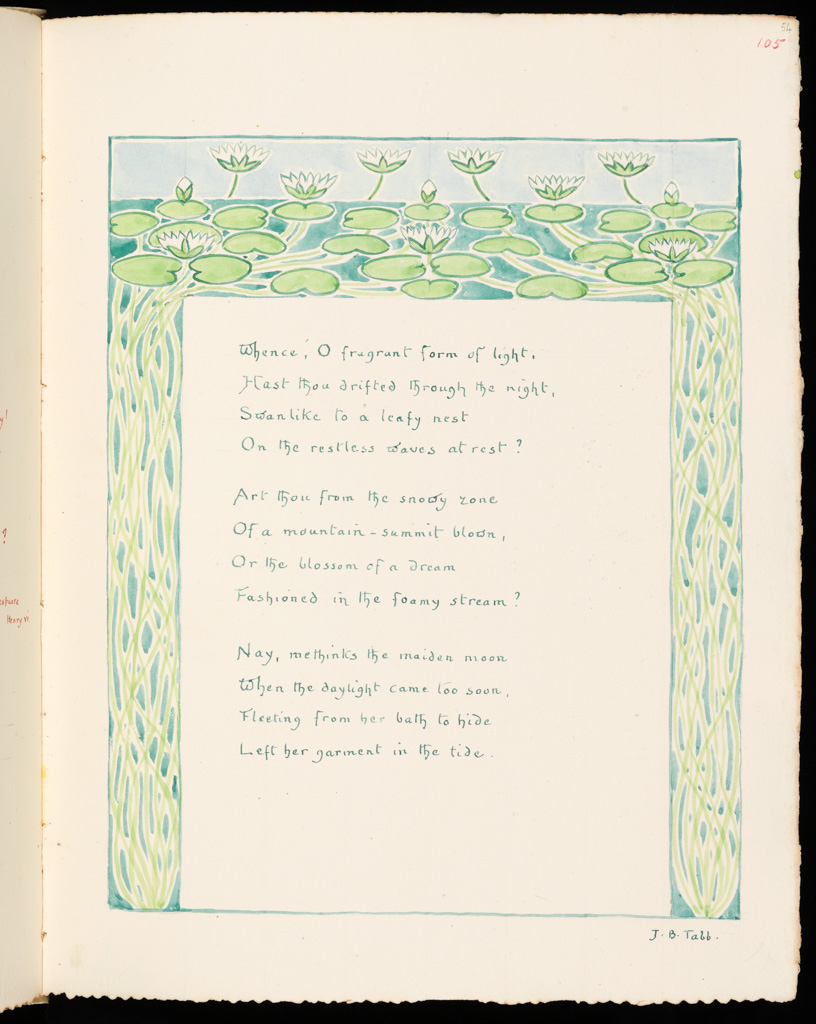 54
105
Whence, O fragrant form of light,
Hast thou drifted through the night,
Swanlike to a leafy nest
On the restless waves at rest?
Art thou from the snowy zone
Of a mountain-summit blown,
Or the blossom of a dream
Fashioned in the foamy stream?
Nay, methinks the maiden moon
When the daylight came too soon,
Fleeting from her bath to hide
Left her garment in the tide.
J. B. Tabb.
Henry VI